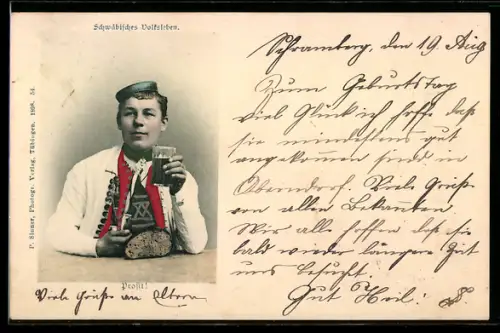 Schwäbisches Volksleben.
P. Sinner, Photogr. Verlag, Tübingen. 1898. 54.
Prosit!
Viele Grüße an Eltern
Schramberg, den 19 Aug
Zum Geburtstag
viel Glück ich hoffe daß
sie mindestens gut
angekommen sind in
Oberndorf. Viele Grüße
von allen Bekannten
Wir alle hoffen daß sie
bald wieder längere Zeit
uns besucht.
Gut Heil: